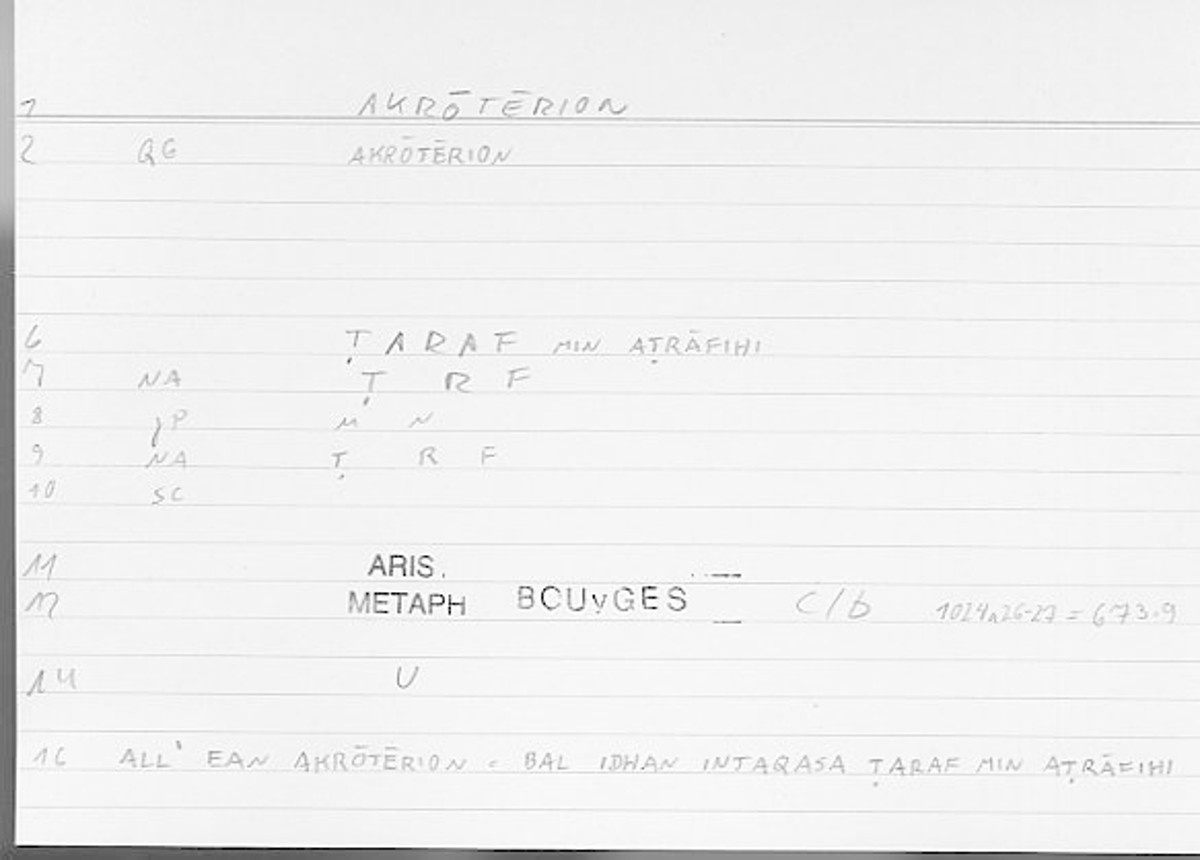 1 AKRŌTĒRION
2 QG AKRŌTĒRION
6 ṬARAF MIN AṬRĀFIHI
7 NA Ṭ R F
8 P M N
9 NA Ṭ R F
10 SC
11 ARIS.
12 METAPH BOUyGES C/b 1024a26-27 = 673.9
14 U
16 ALL' EAN AKRŌTĒRION = BAL IDHAN INTAQASA ṬARAF MIN AṬRĀFIHI